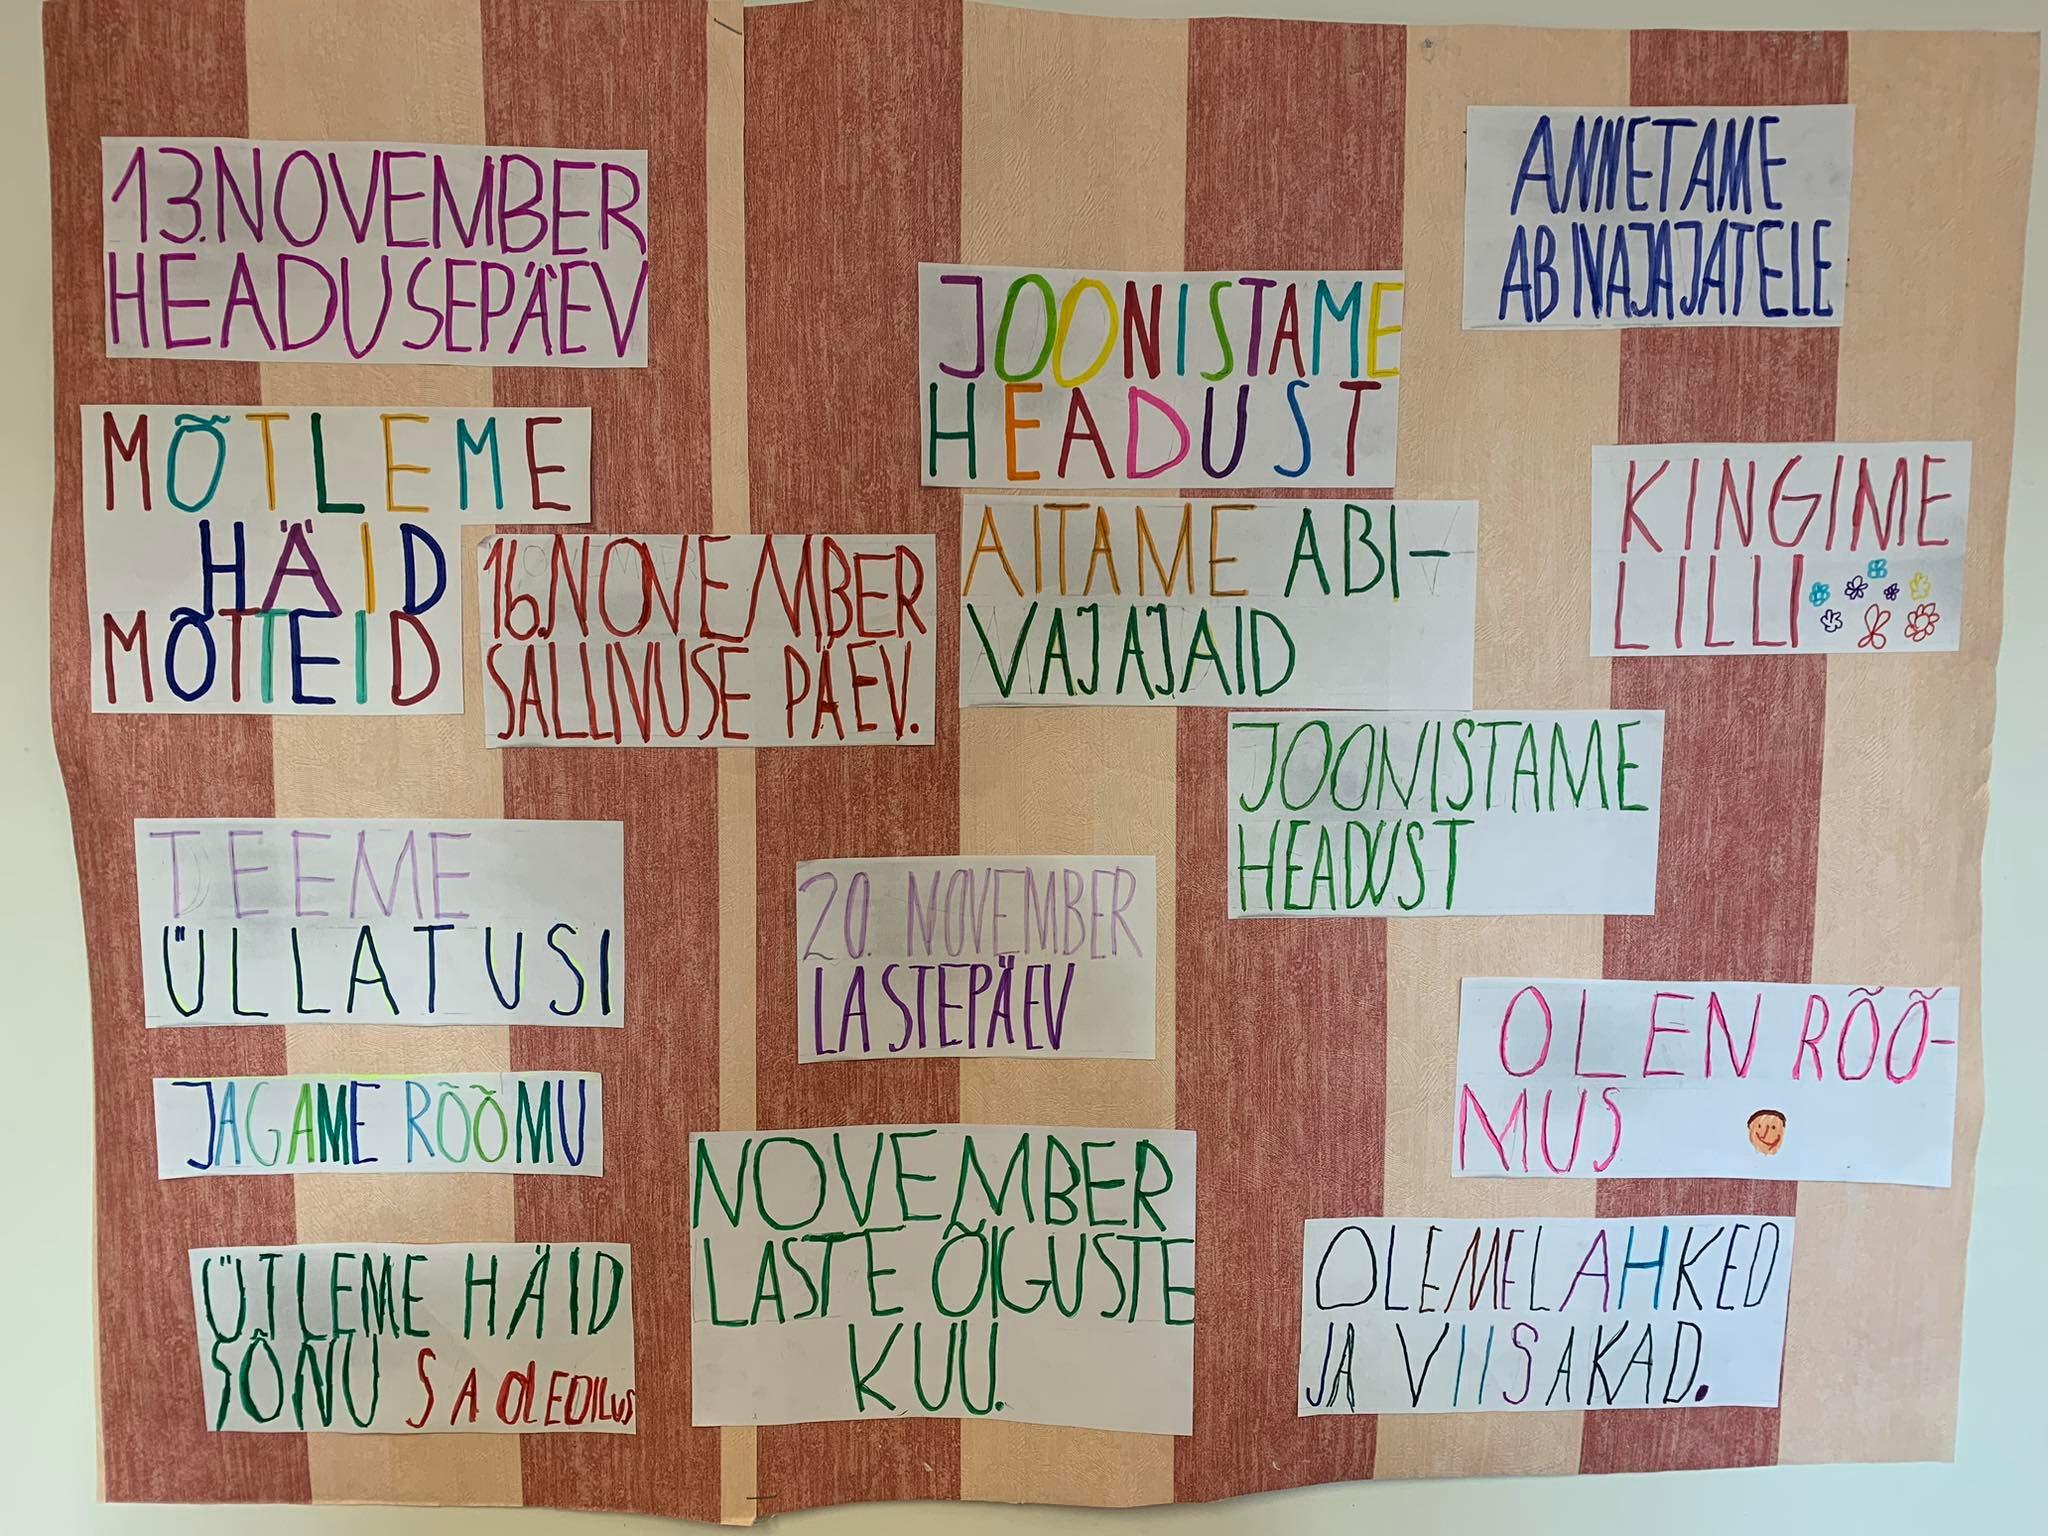 13. NOVEMBER
HEADUSEPÄEV
MÕTLEME
HÄID
MÕTTEID
16. NOVEMBER
SALLIVUSE PÄEV.
TEEME
ÜLLATUSI
JAGAME RÕÕMU
ÜTLEME HÄID
SÕNU SA OLED ILUS
JOONISTAME
HEADUST
AITAME ABI-
VAJAJAID
20. NOVEMBER
LASTEPÄEV
NOVEMBER
LASTE ÕIGUSTE
KUU.
ANNETAME
ABIVAJAJATELE
KINGIME
LILLI
JOONISTAME
HEADUST
OLEN RÕÕ-
MUS
OLEME LAHKED
JA VIISAKAD.